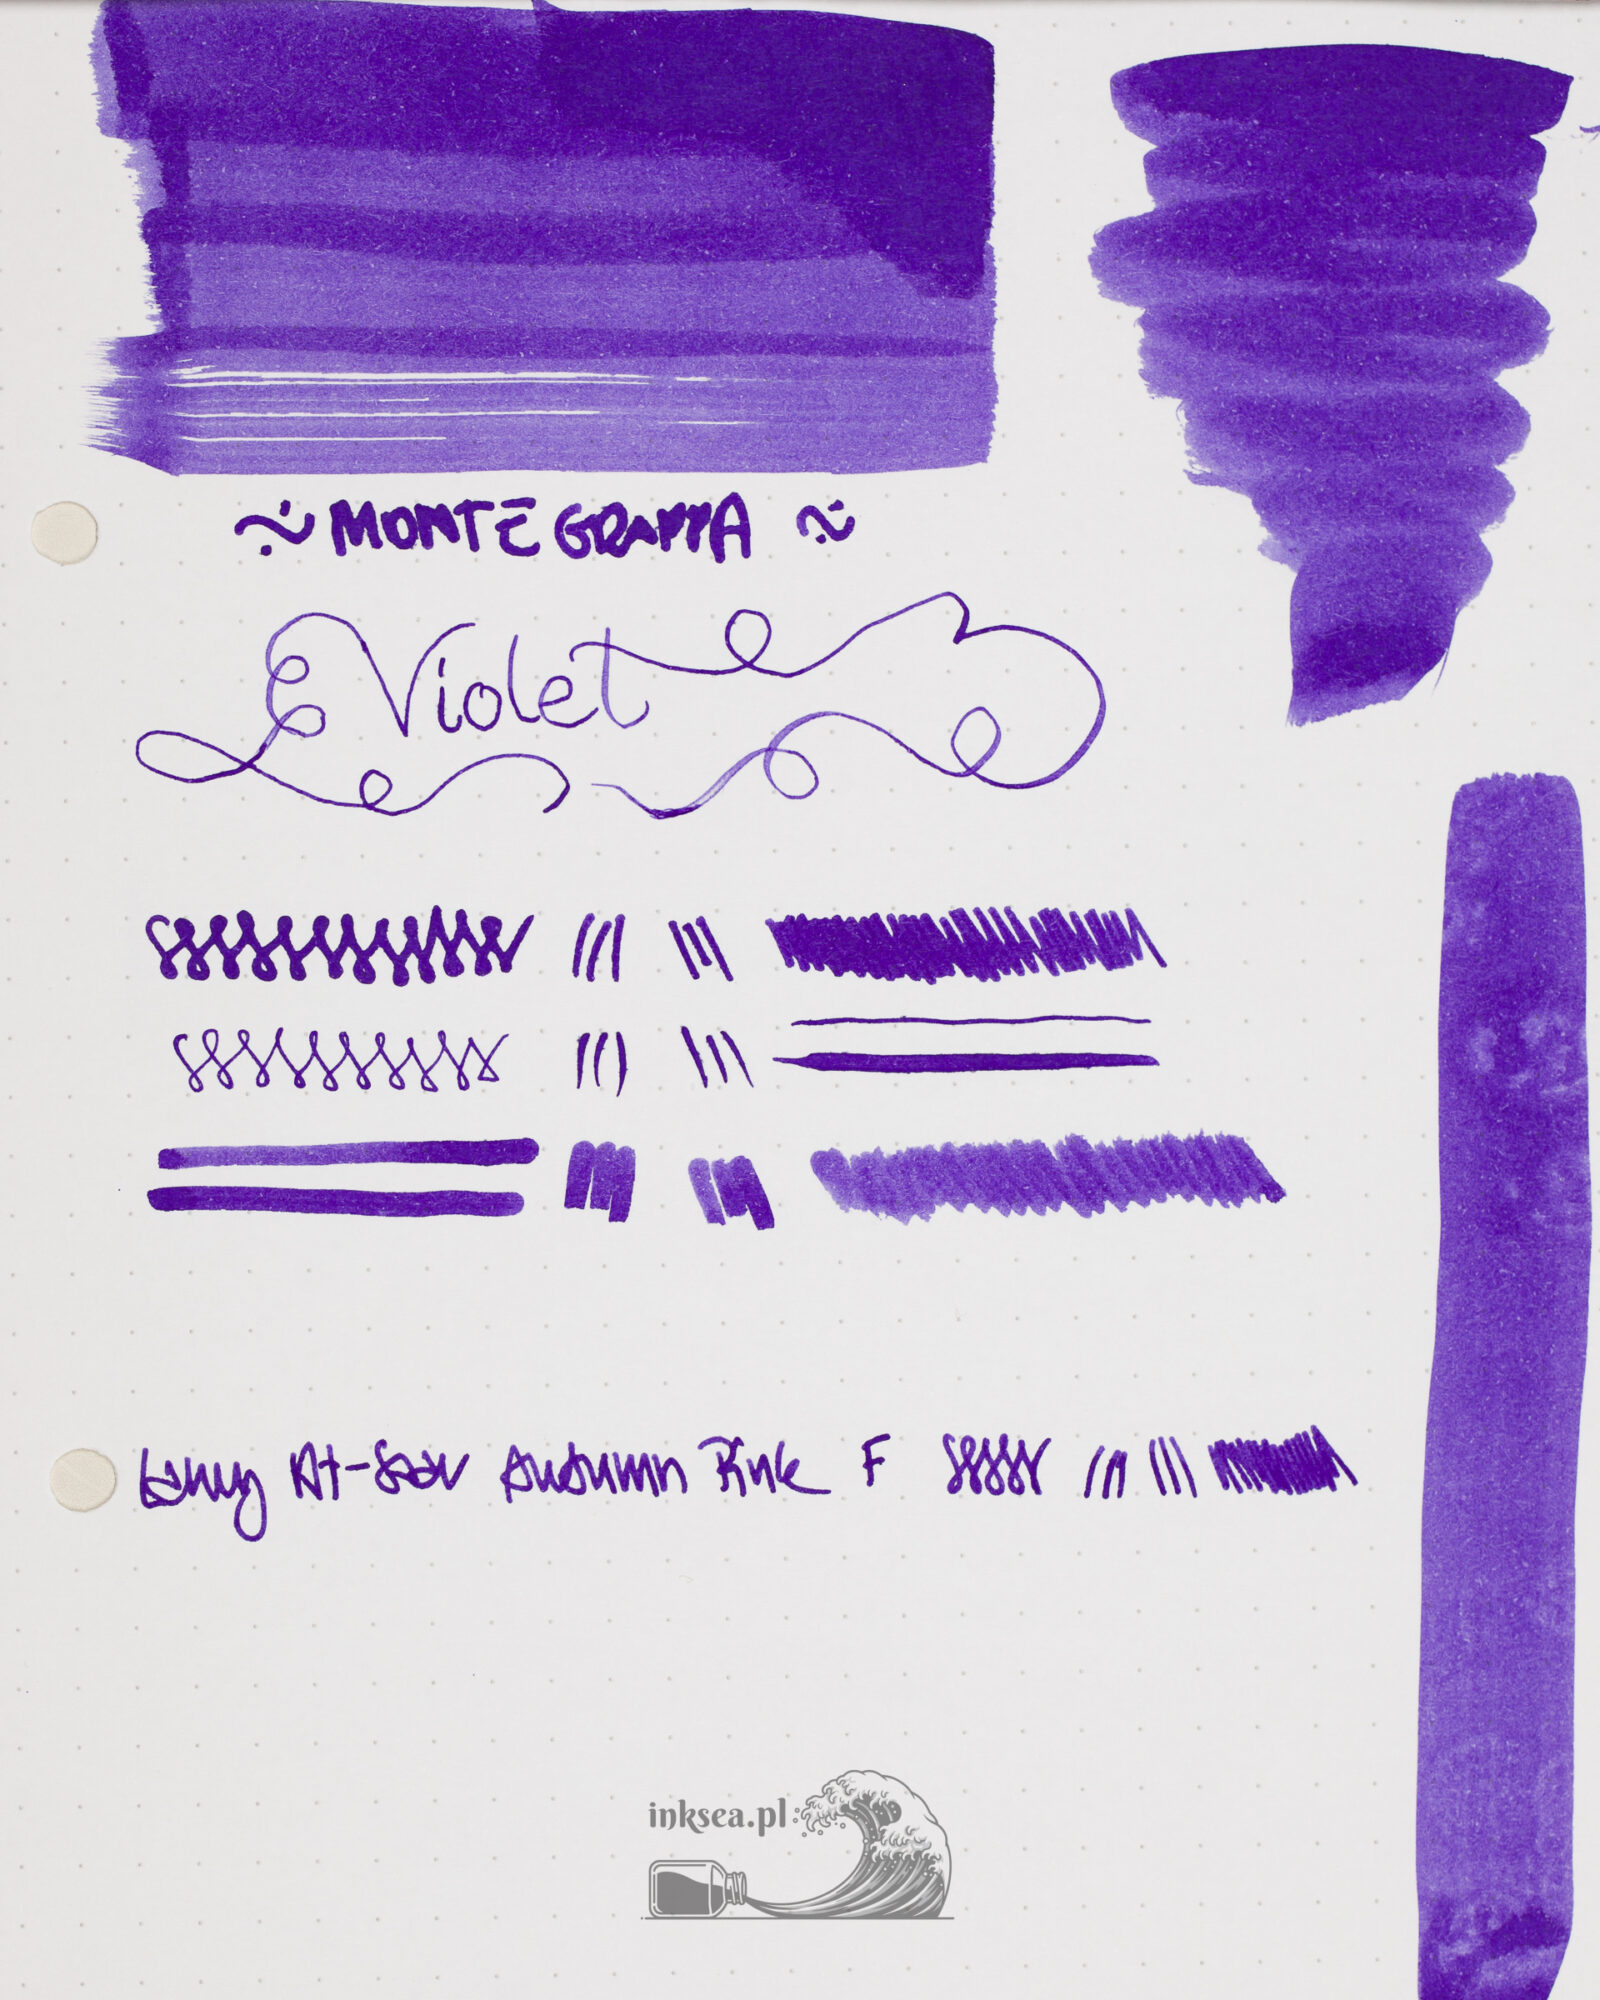 ~ MONTEGRAPPA ~
Violet
Lamy Al-Star Autumn Pink F
inksea.pl